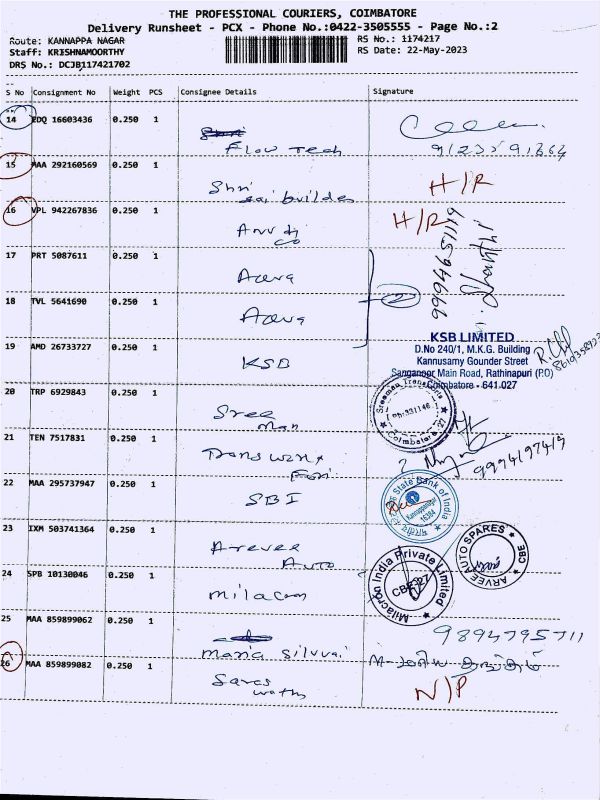 THE PROFESSIONAL COURIERS, COIMBATORE
Delivery Runsheet - PCX - Phone No.:0422-3505555 - Page No.:2
Route: KANNAPPA NAGAR
RS No.: 1174217
Staff: KRISHNAMOORTHY
RS Date: 22-May-2023
DRS No.: DCJB117421702
S No Consignment No Weight PCS Consignee Details Signature
14 EDQ 16603436 0.250 1
Flow Tech
15 MAA 292160569 0.250 1 H/R
Shri
sai builders
16 VPL 942267836 0.250 1 H/R
17 PRT 5087611 0.250 1
18 TVL 5641690 0.250 1
2
19 AMD 26733727 0.250 1 KSB
KSB LIMITED
D.No 240/1, M.K.G. Building
Kannusamy Gounder Street
Sanganoor Main Road, Rathinapuri (P.O)
Coimbatore - 641.027
20 TRP 6929843 0.250 1
Sree
man
Sreeman Transports
Ph:331146
Coimbatore - 27
21 TEN 7517831 0.250 1
9994197419
22 MAA 295737947 0.250 1 SBI
State Bank of India
Kannappanagar
16384
23 IXM 503741364 0.250 1
Arevee
Auto
ARVEE AUTO SPARES
CBE
24 SPB 10130046 0.250 1 milacron
Milacron India Private Limited
CBE-27
25 MAA 859899062 0.250 1
maria Silvvai
9894795711
26 MAA 859899082 0.250 1 N/P
Saras
wathi